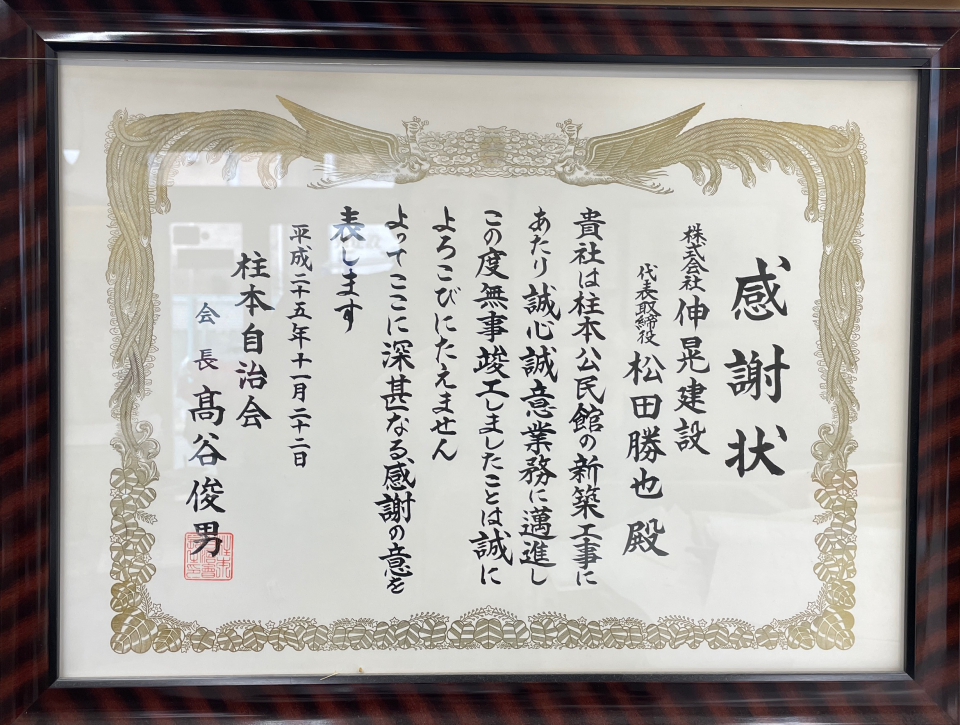 感謝状
株式会社 伸晃建設
代表取締役 松田勝也 殿
貴社は柱本公民館の新築工事に
あたり誠心誠意業務に邁進し
この度無事竣工しましたことは誠に
よろこびにたえません
よってここに深甚なる感謝の意を
表します
平成二十五年十一月二十二日
柱本自治会
会長 髙谷俊男